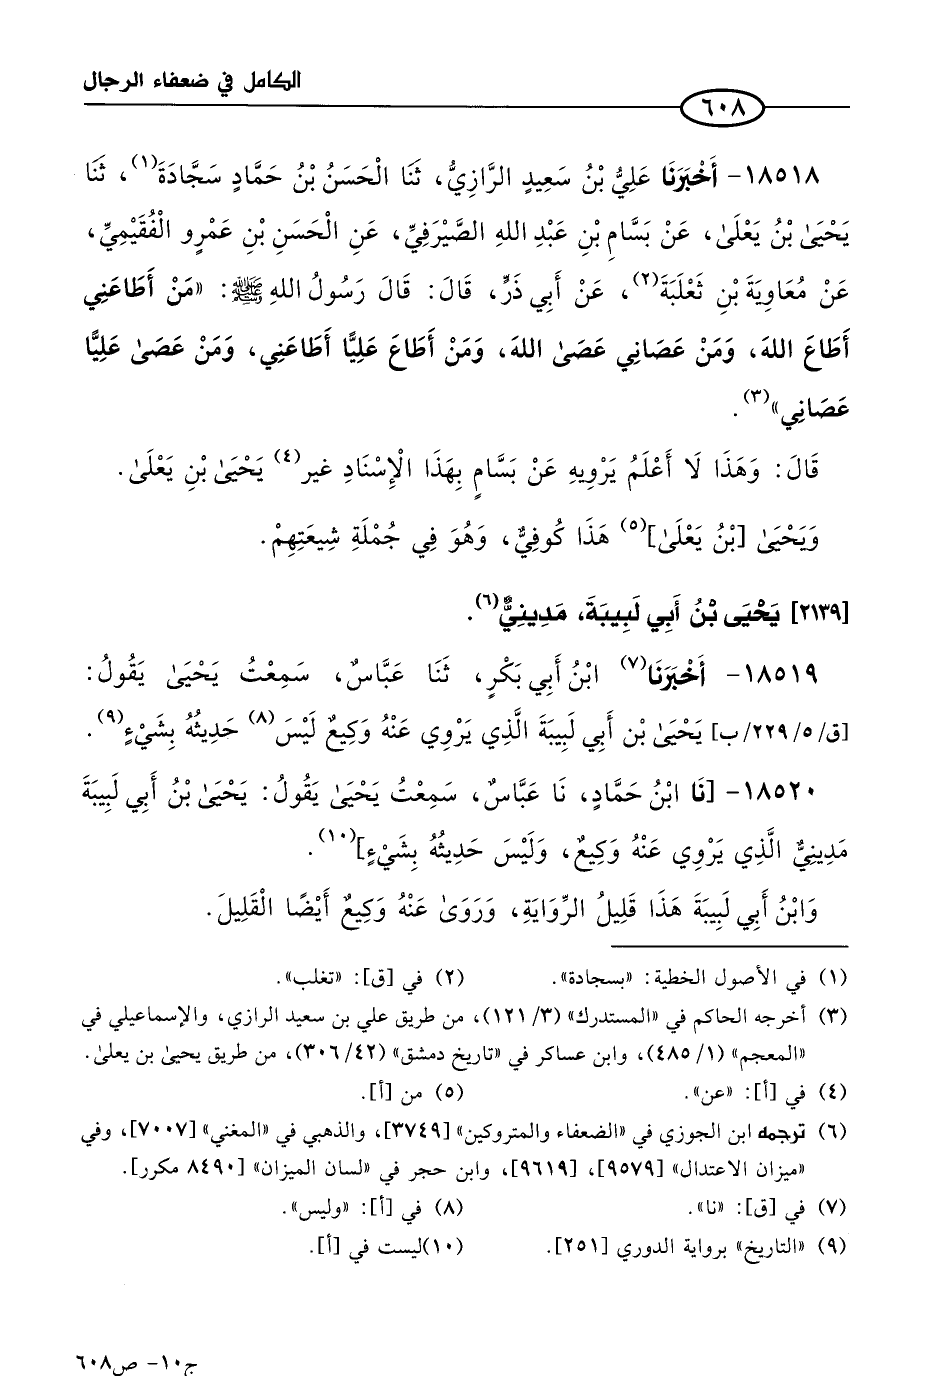 الكامل في ضعفاء الرجال
٦٠٨
١٨٥١٨- أَخْبَرَنَا عَلِيُّ بْنُ سَعِيدٍ الرَّازِيُّ، ثَنَا الْحَسَنُ بْنُ حَمَّادٍ سَجَّادَةَ(١)، ثَنَا
يَحْيَىٰ بْنُ يَعْلَىٰ، عَنْ بَسَّامِ بْنِ عَبْدِ اللهِ الصَّيْرَفِيِّ، عَنِ الْحَسَنِ بْنِ عَمْرٍو الْفُقَيْمِيِّ،
عَنْ مُعَاوِيَةَ بْنِ ثَعْلَبَةَ(٢)، عَنْ أَبِي ذَرٍّ، قَالَ: قَالَ رَسُولُ اللهِ ﷺ: «مَنْ أَطَاعَنِي
أَطَاعَ اللهَ، وَمَنْ عَصَانِي عَصَىٰ اللهَ، وَمَنْ أَطَاعَ عَلِيًّا أَطَاعَنِي، وَمَنْ عَصَىٰ عَلِيًّا
عَصَانِي»(٣).
قَالَ: وَهَذَا لَا أَعْلَمُ يَرْوِيهِ عَنْ بَسَّامٍ بِهَذَا الْإِسْنَادِ غير(٤) يَحْيَىٰ بْنِ يَعْلَىٰ.
وَيَحْيَىٰ [بْنُ يَعْلَىٰ](٥) هَذَا كُوفِيٌّ، وَهُوَ فِي جُمْلَةِ شِيعَتِهِمْ.
[٢١٣٩] يَحْيَى بْنُ أَبِي لَبِيبَةَ، مَدِينِيٌّ(٦).
١٨٥١٩- أَخْبَرَنَا(٧) ابْنُ أَبِي بَكْرٍ، ثَنَا عَبَّاسٌ، سَمِعْتُ يَحْيَىٰ يَقُولُ:
[ق/٥/٢٢٩/ب] يَحْيَىٰ بْن أَبِي لَبِيبَةَ الَّذِي يَرْوِي عَنْهُ وَكِيعٌ لَيْسَ(٨) حَدِيثُهُ بِشَيْءٍ(٩).
١٨٥٢٠- [نَا ابْنُ حَمَّادٍ، نَا عَبَّاسٌ، سَمِعْتُ يَحْيَىٰ يَقُولُ: يَحْيَىٰ بْنُ أَبِي لَبِيبَةَ
مَدِينِيٌّ الَّذِي يَرْوِي عَنْهُ وَكِيعٌ، وَلَيْسَ حَدِيثُهُ بِشَيْءٍ](١٠).
وَابْنُ أَبِي لَبِيبَةَ هَذَا قَلِيلُ الرِّوَايَةِ، وَرَوَىٰ عَنْهُ وَكِيعٌ أَيْضًا الْقَلِيلَ.
(١) في الأصول الخطية: «بسجادة». (٢) في [ق]: «تغلب».
(٣) أخرجه الحاكم في «المستدرك» (٣/ ١٢١)، من طريق علي بن سعيد الرازي، والإسماعيلي في
«المعجم» (١/ ٤٨٥)، وابن عساكر في «تاريخ دمشق» (٤٢/ ٣٠٦)، من طريق يحيىٰ بن يعلىٰ.
(٤) في [أ]: «عن». (٥) من [أ].
(٦) ترجمه ابن الجوزي في «الضعفاء والمتروكين» [٣٧٤٩]، والذهبي في «المغني» [٧٠٠٧]، وفي
«ميزان الاعتدال» [٩٥٧٩]، [٩٦١٩]، وابن حجر في «لسان الميزان» [٨٤٩٠ مكرر].
(٧) في [ق]: «نا». (٨) في [أ]: «وليس».
(٩) «التاريخ» برواية الدوري [٢٥١]. (١٠)ليست في [أ].
ج١٠- ص٦٠٨